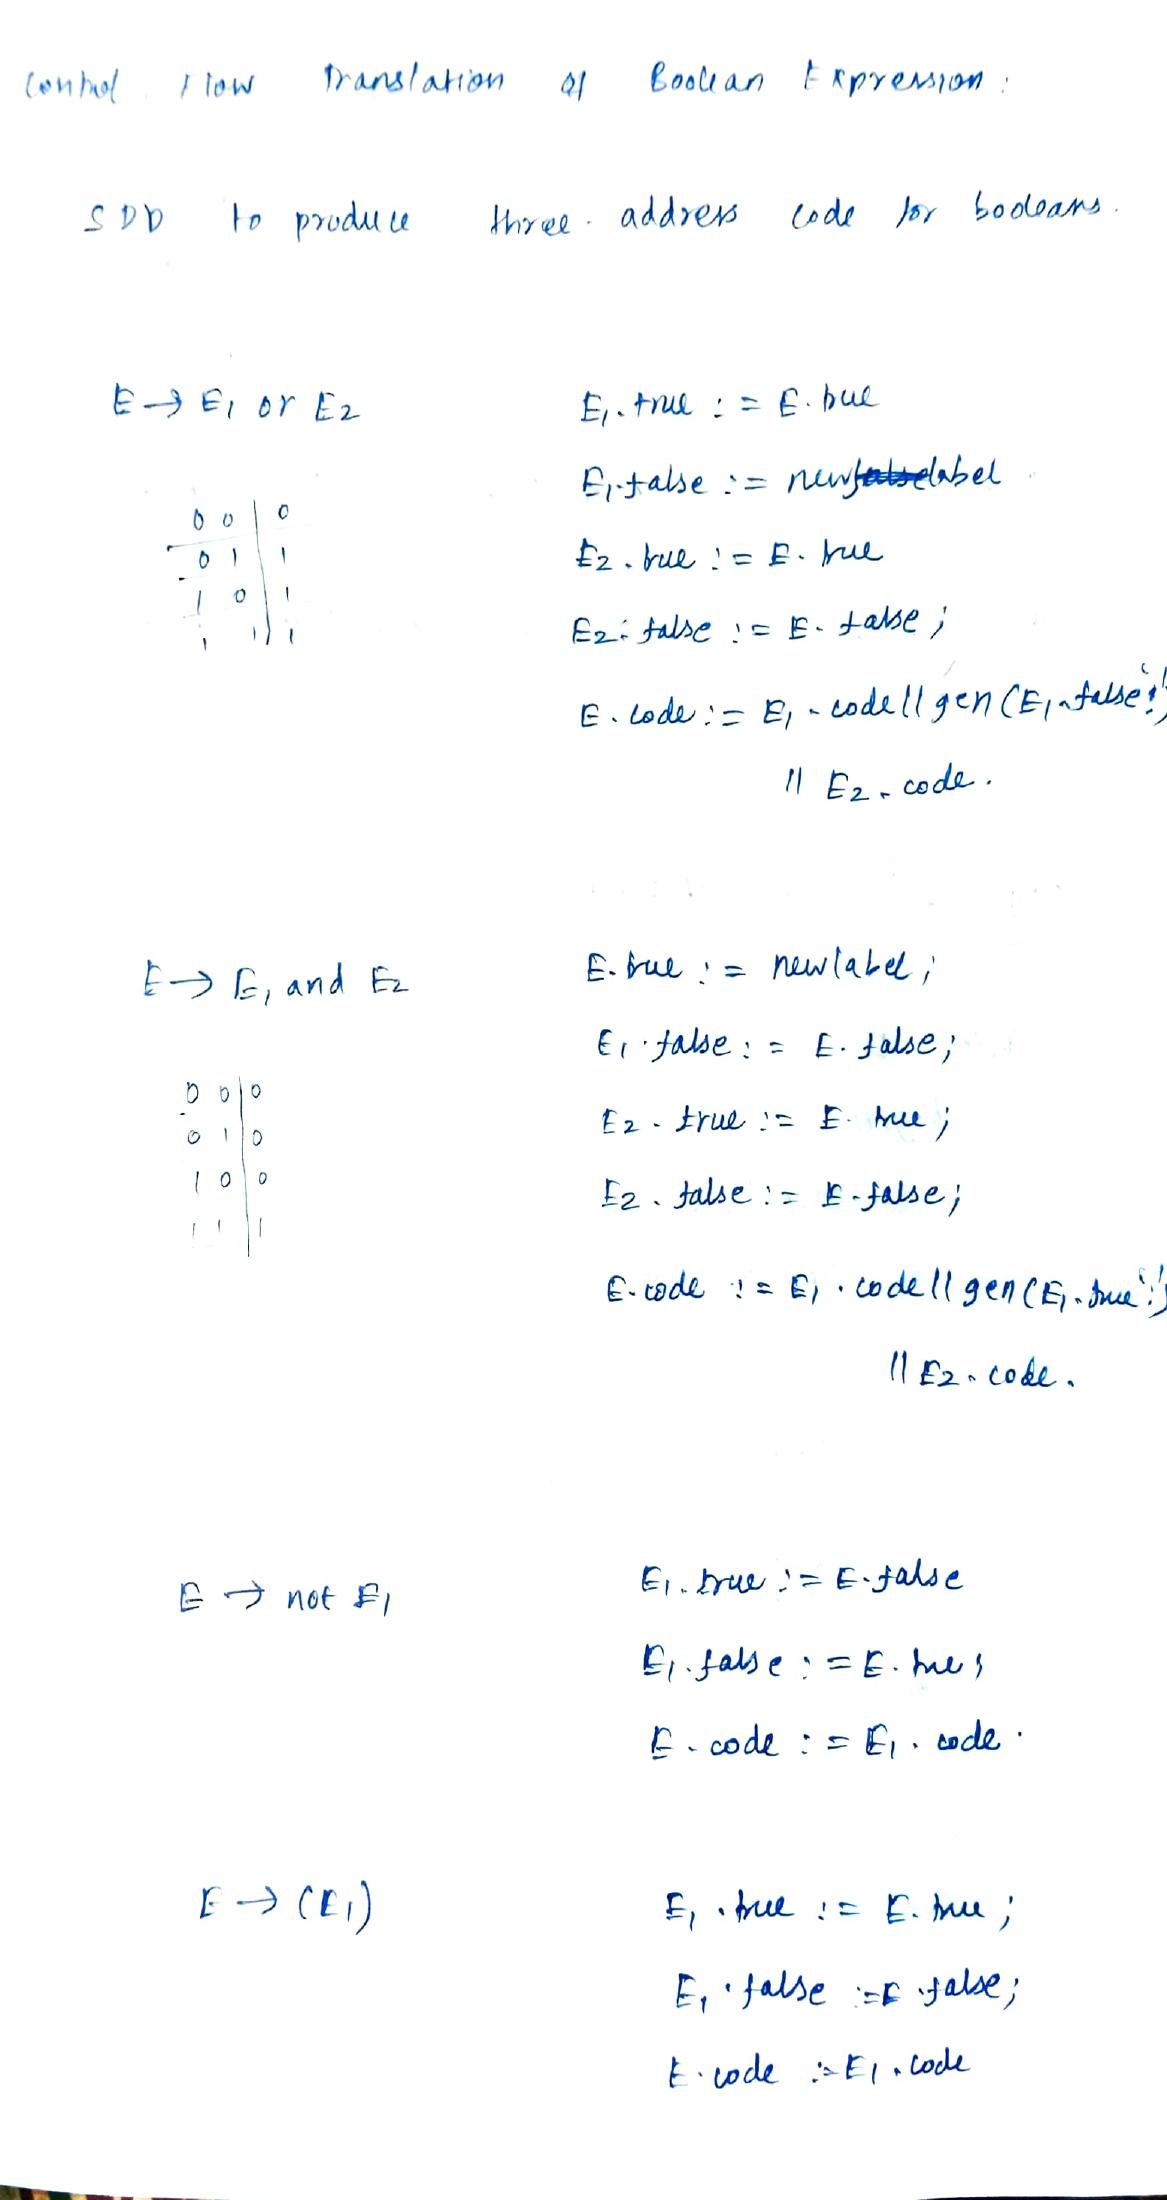 Control Flow Translation of Boolean Expression:
SDD to produce three-address code for booleans.
E → E1 or E2
E1.true := E.true
E1.false := newlabel
0 0 | 0
E2.true := E.true
0 1 | 1
1 0 | 1
E2.false := E.false;
1 1 | 1
E.code := E1.code || gen(E1.false ':')
|| E2.code.
E → E1 and E2
E.true := newlabel;
E1.false := E.false;
0 0 | 0
E2.true := E.true;
0 1 | 0
1 0 | 0
E2.false := E.false;
1 1 | 1
E.code := E1.code || gen(E1.true ':')
|| E2.code.
E → not E1
E1.true := E.false
E1.false := E.true;
E.code := E1.code.
E → (E1)
E1.true := E.true;
E1.false := E.false;
E.code := E1.code